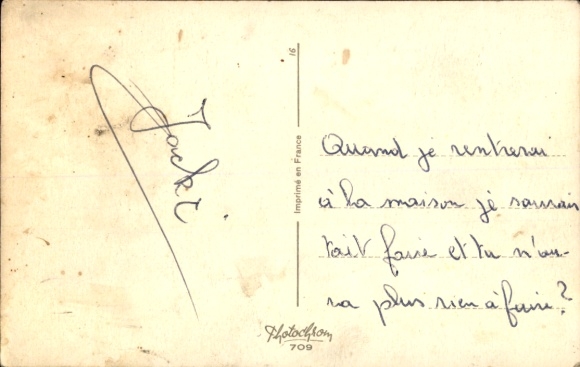 Jacki
16
Imprimé en France
Quand je rentrerai
à la maison je saurais
tait faire et tu n'au-
ra plus rien à faire?
Photochrom
709